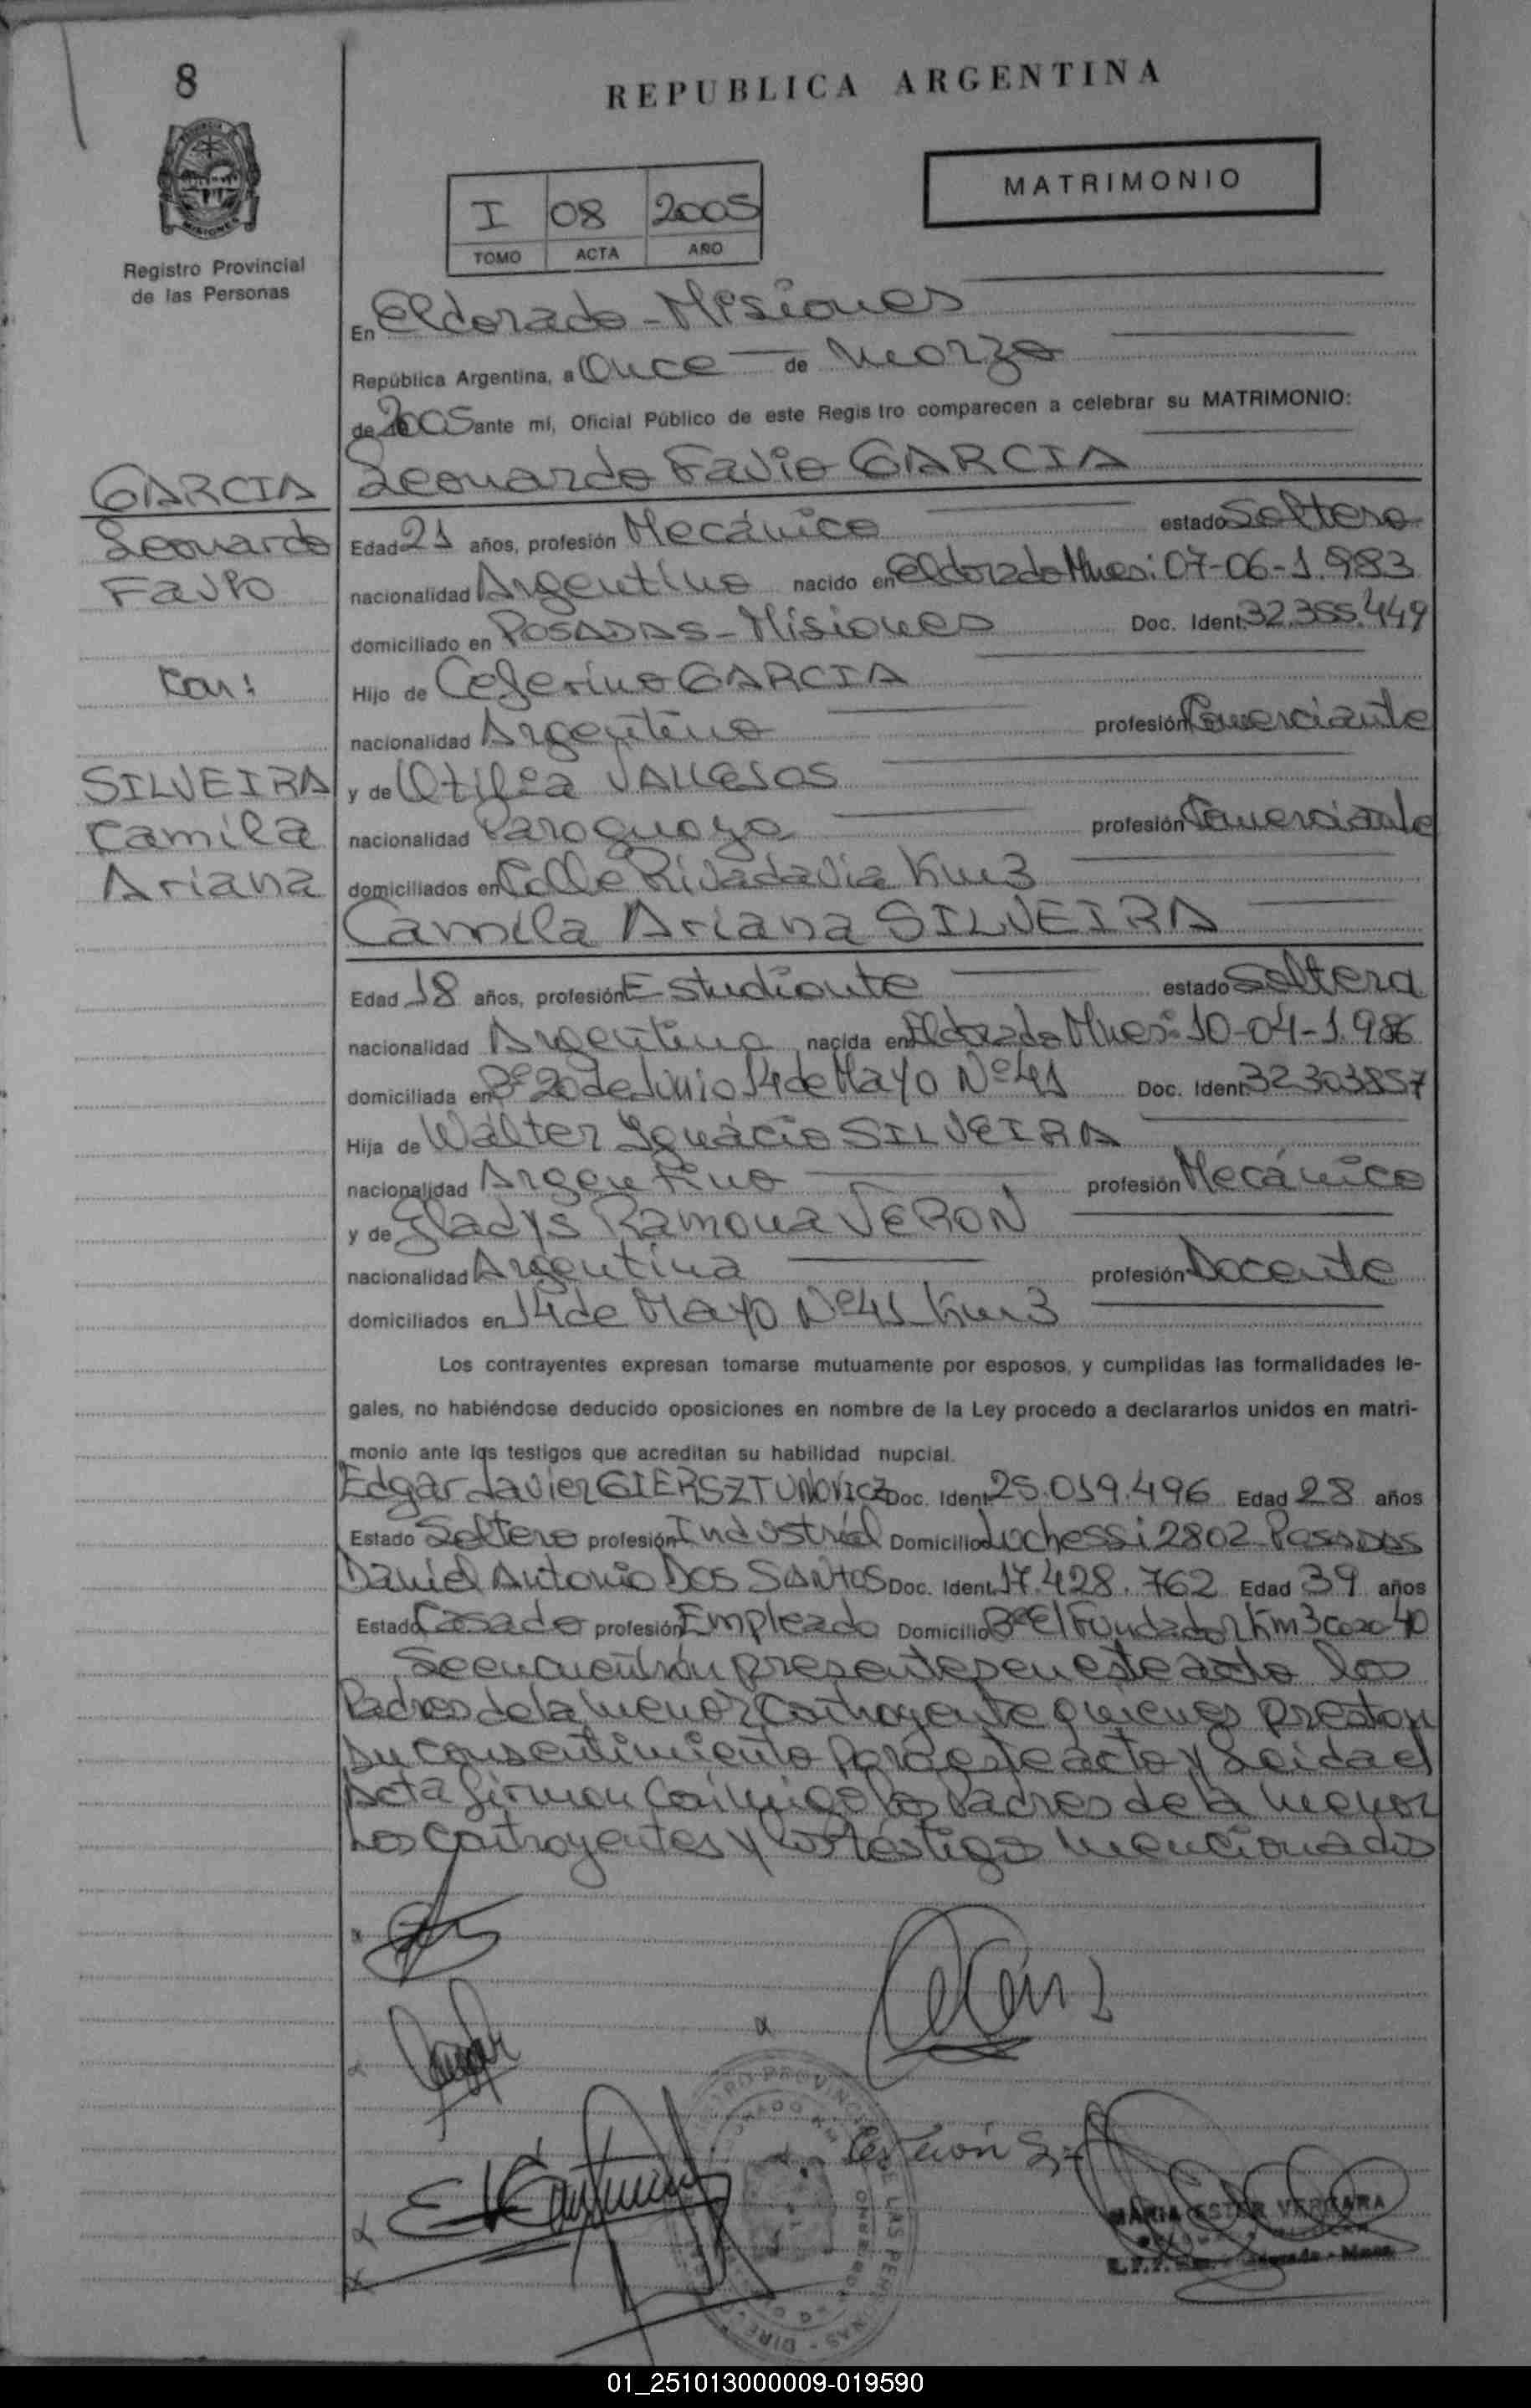 8
REPUBLICA ARGENTINA
MATRIMONIO
I 08 2005
TOMO ACTA AÑO
Registro Provincial
de las Personas
En Eldorado - Misiones
República Argentina, a Once de Marzo
de 2005 ante mí, Oficial Público de este Registro comparecen a celebrar su MATRIMONIO:
GARCIA
Leonardo
Favio
Con:
SILVEIRA
Camila
Ariana
Leonardo Favio GARCIA
Edad 21 años, profesión Mecánico estado Soltero
nacionalidad Argentino nacido en Eldorado Mnes: 07-06-1.983
domiciliado en POSADAS - Misiones Doc. Ident. 32.355.449
Hijo de Ceferino GARCIA
nacionalidad Argentino profesión Comerciante
y de Otilia VALLEJOS
nacionalidad Paraguaya profesión Comerciante
domiciliados en Calle Rivadavia Km 3
Camila Ariana SILVEIRA
Edad 18 años, profesión Estudiante estado Soltera
nacionalidad Argentina nacida en Eldorado Mnes: 10-04-1.986
domiciliada en Bº 20 de Junio 14 de Mayo Nº 41 Doc. Ident. 32303857
Hija de Walter Ignacio SILVEIRA
nacionalidad Argentino profesión Mecánico
y de Gladys Ramona VERON
nacionalidad Argentina profesión Docente
domiciliados en 14 de Mayo Nº 41 Km 3
Los contrayentes expresan tomarse mutuamente por esposos, y cumplidas las formalidades le-
gales, no habiéndose deducido oposiciones en nombre de la Ley procedo a declararlos unidos en matri-
monio ante los testigos que acreditan su habilidad nupcial.
Edgar Javier GIERSZTUNOVICZ Doc. Ident. 25.019.496 Edad 28 años
Estado Soltero profesión Industrial Domicilio Luchessi 2802 POSADAS
Daniel Antonio DOS SANTOS Doc. Ident. 17.428.762 Edad 39 años
Estado Casado profesión Empleado Domicilio Bº El Fundador Km 3 casa 40
Se encuentran presentes en este acto los
Padres de la menor contrayente quienes prestan
su consentimiento para este acto y Leida el
Acta firman conmigo los Padres de la menor
Los contrayentes y los testigos mencionados
MARIA ESTER VERGARA
01_251013000009-019590